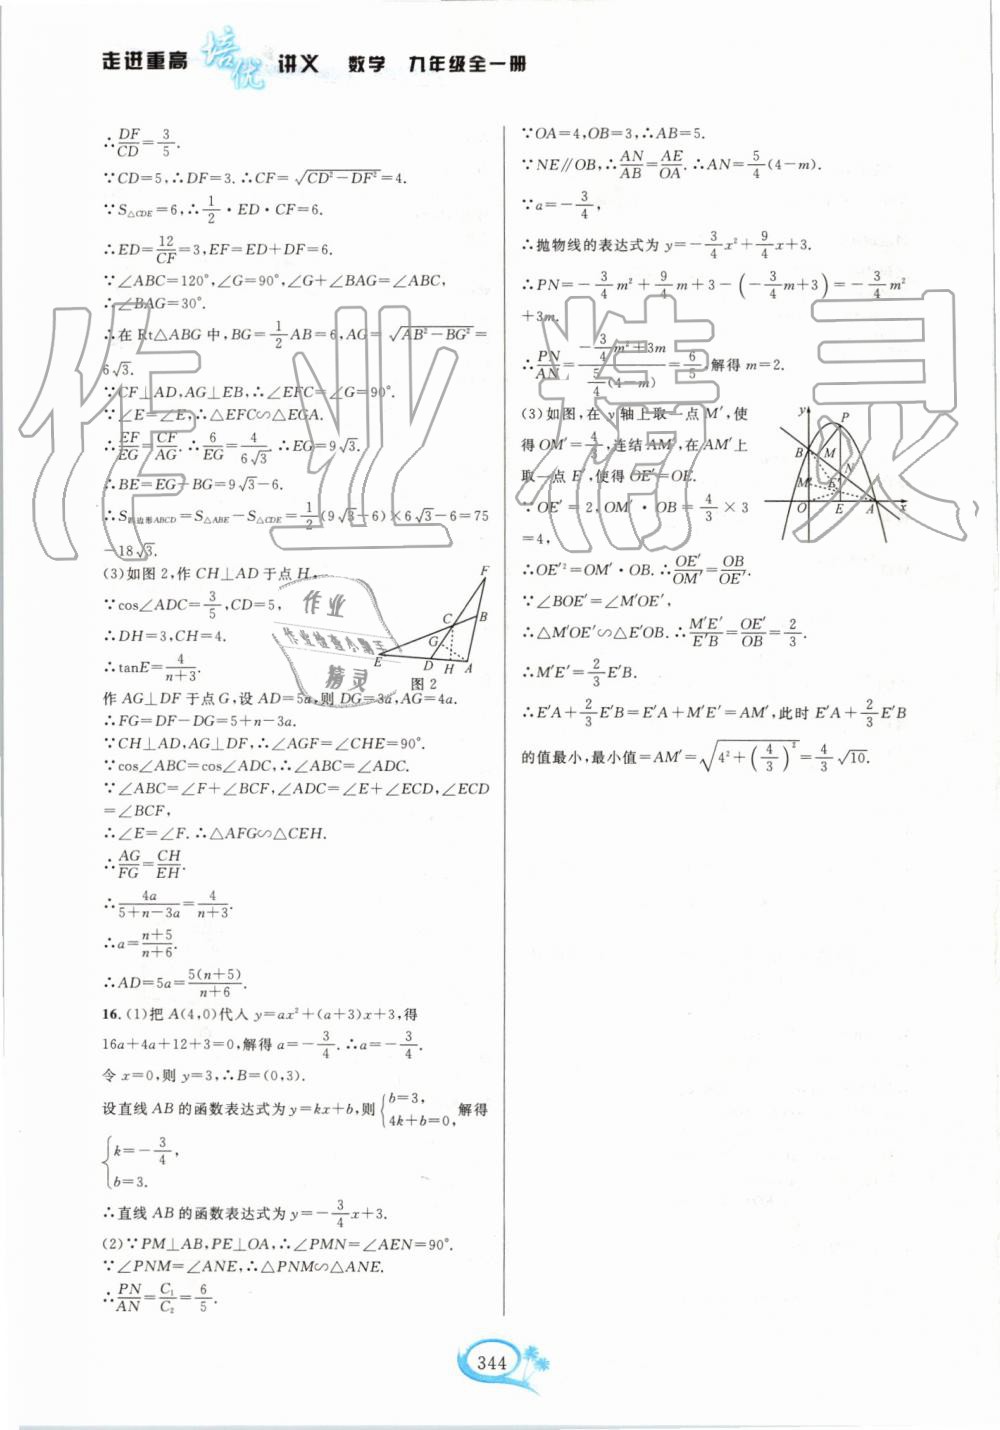 走进重高 培优 讲义 数学 九年级全一册
∴DF/CD=3/5.
∵CD=5,∴DF=3.∴CF=√(CD²−DF²)=4.
∵S△CDE=6,∴1/2·ED·CF=6.
∴ED=12/CF=3,EF=ED+DF=6.
∵∠ABC=120°,∠G=90°,∠G+∠BAG=∠ABC,
∴∠BAG=30°.
∴在 Rt△ABG 中,BG=1/2AB=6,AG=√(AB²−BG²)=
6√3.
∵CF⊥AD,AG⊥EB,∴∠EFC=∠G=90°.
∵∠E=∠E,∴△EFC∽△EGA.
∴EF/EG=CF/AG.∴6/EG=4/(6√3).∴EG=9√3.
∴BE=EG−BG=9√3−6.
∴S四边形ABCD=S△ABE−S△CDE=1/2(9√3−6)×6√3−6=75
−18√3.
(3)如图 2,作 CH⊥AD 于点 H,
∵cos∠ADC=3/5,CD=5,
∴DH=3,CH=4.
∴tanE=4/(n+3).
F
C
B
G
E
D
H
A
图 2
作 AG⊥DF 于点 G,设 AD=5a,则 DG=3a,AG=4a.
∴FG=DF−DG=5+n−3a.
∵CH⊥AD,AG⊥DF,∴∠AGF=∠CHE=90°.
∵cos∠ABC=cos∠ADC,∴∠ABC=∠ADC.
∵∠ABC=∠F+∠BCF,∠ADC=∠E+∠ECD,∠ECD
=∠BCF,
∴∠E=∠F.∴△AFG∽△CEH.
∴AG/FG=CH/EH.
∴4a/(5+n−3a)=4/(n+3).
∴a=(n+5)/(n+6).
∴AD=5a=5(n+5)/(n+6).
16.(1)把 A(4,0)代入 y=ax²+(a+3)x+3,得
16a+4a+12+3=0,解得 a=−3/4.∴a=−3/4.
令 x=0,则 y=3,∴B=(0,3).
设直线 AB 的函数表达式为 y=kx+b,则{b=3, 4k+b=0,解得
{k=−3/4,
b=3.
∴直线 AB 的函数表达式为 y=−3/4x+3.
(2)∵PM⊥AB,PE⊥OA,∴∠PMN=∠AEN=90°.
∵∠PNM=∠ANE,∴△PNM∽△ANE.
∴PN/AN=C₁/C₂=6/5.
∵OA=4,OB=3,∴AB=5.
∵NE∥OB,∴AN/AB=AE/OA.∴AN=5/4(4−m).
∵a=−3/4,
∴抛物线的表达式为 y=−3/4x²+9/4x+3.
∴PN=−3/4m²+9/4m+3−(−3/4m+3)=−3/4m²
+3m.
∴PN/AN=(−3/4m²+3m)/(5/4(4−m))=6/5.解得 m=2.
(3)如图,在 y 轴上取一点 M′,使
得 OM′=4/3,连结 AM′,在 AM′上
取一点 E′,使得 OE′=OE.
∵OE′=2,OM′·OB=4/3×3
=4,
y
P
B
M
N
M′
E′
O
E
A
x
∴OE′²=OM′·OB.∴OE′/OM′=OB/OE′.
∵∠BOE′=∠M′OE′,
∴△M′OE′∽△E′OB.∴M′E′/E′B=OE′/OB=2/3.
∴M′E′=2/3E′B.
∴E′A+2/3E′B=E′A+M′E′=AM′,此时 E′A+2/3E′B
的值最小,最小值=AM′=√(4²+(4/3)²)=4/3√10.
作业精灵
作业
作业检查小帮手
精灵
344